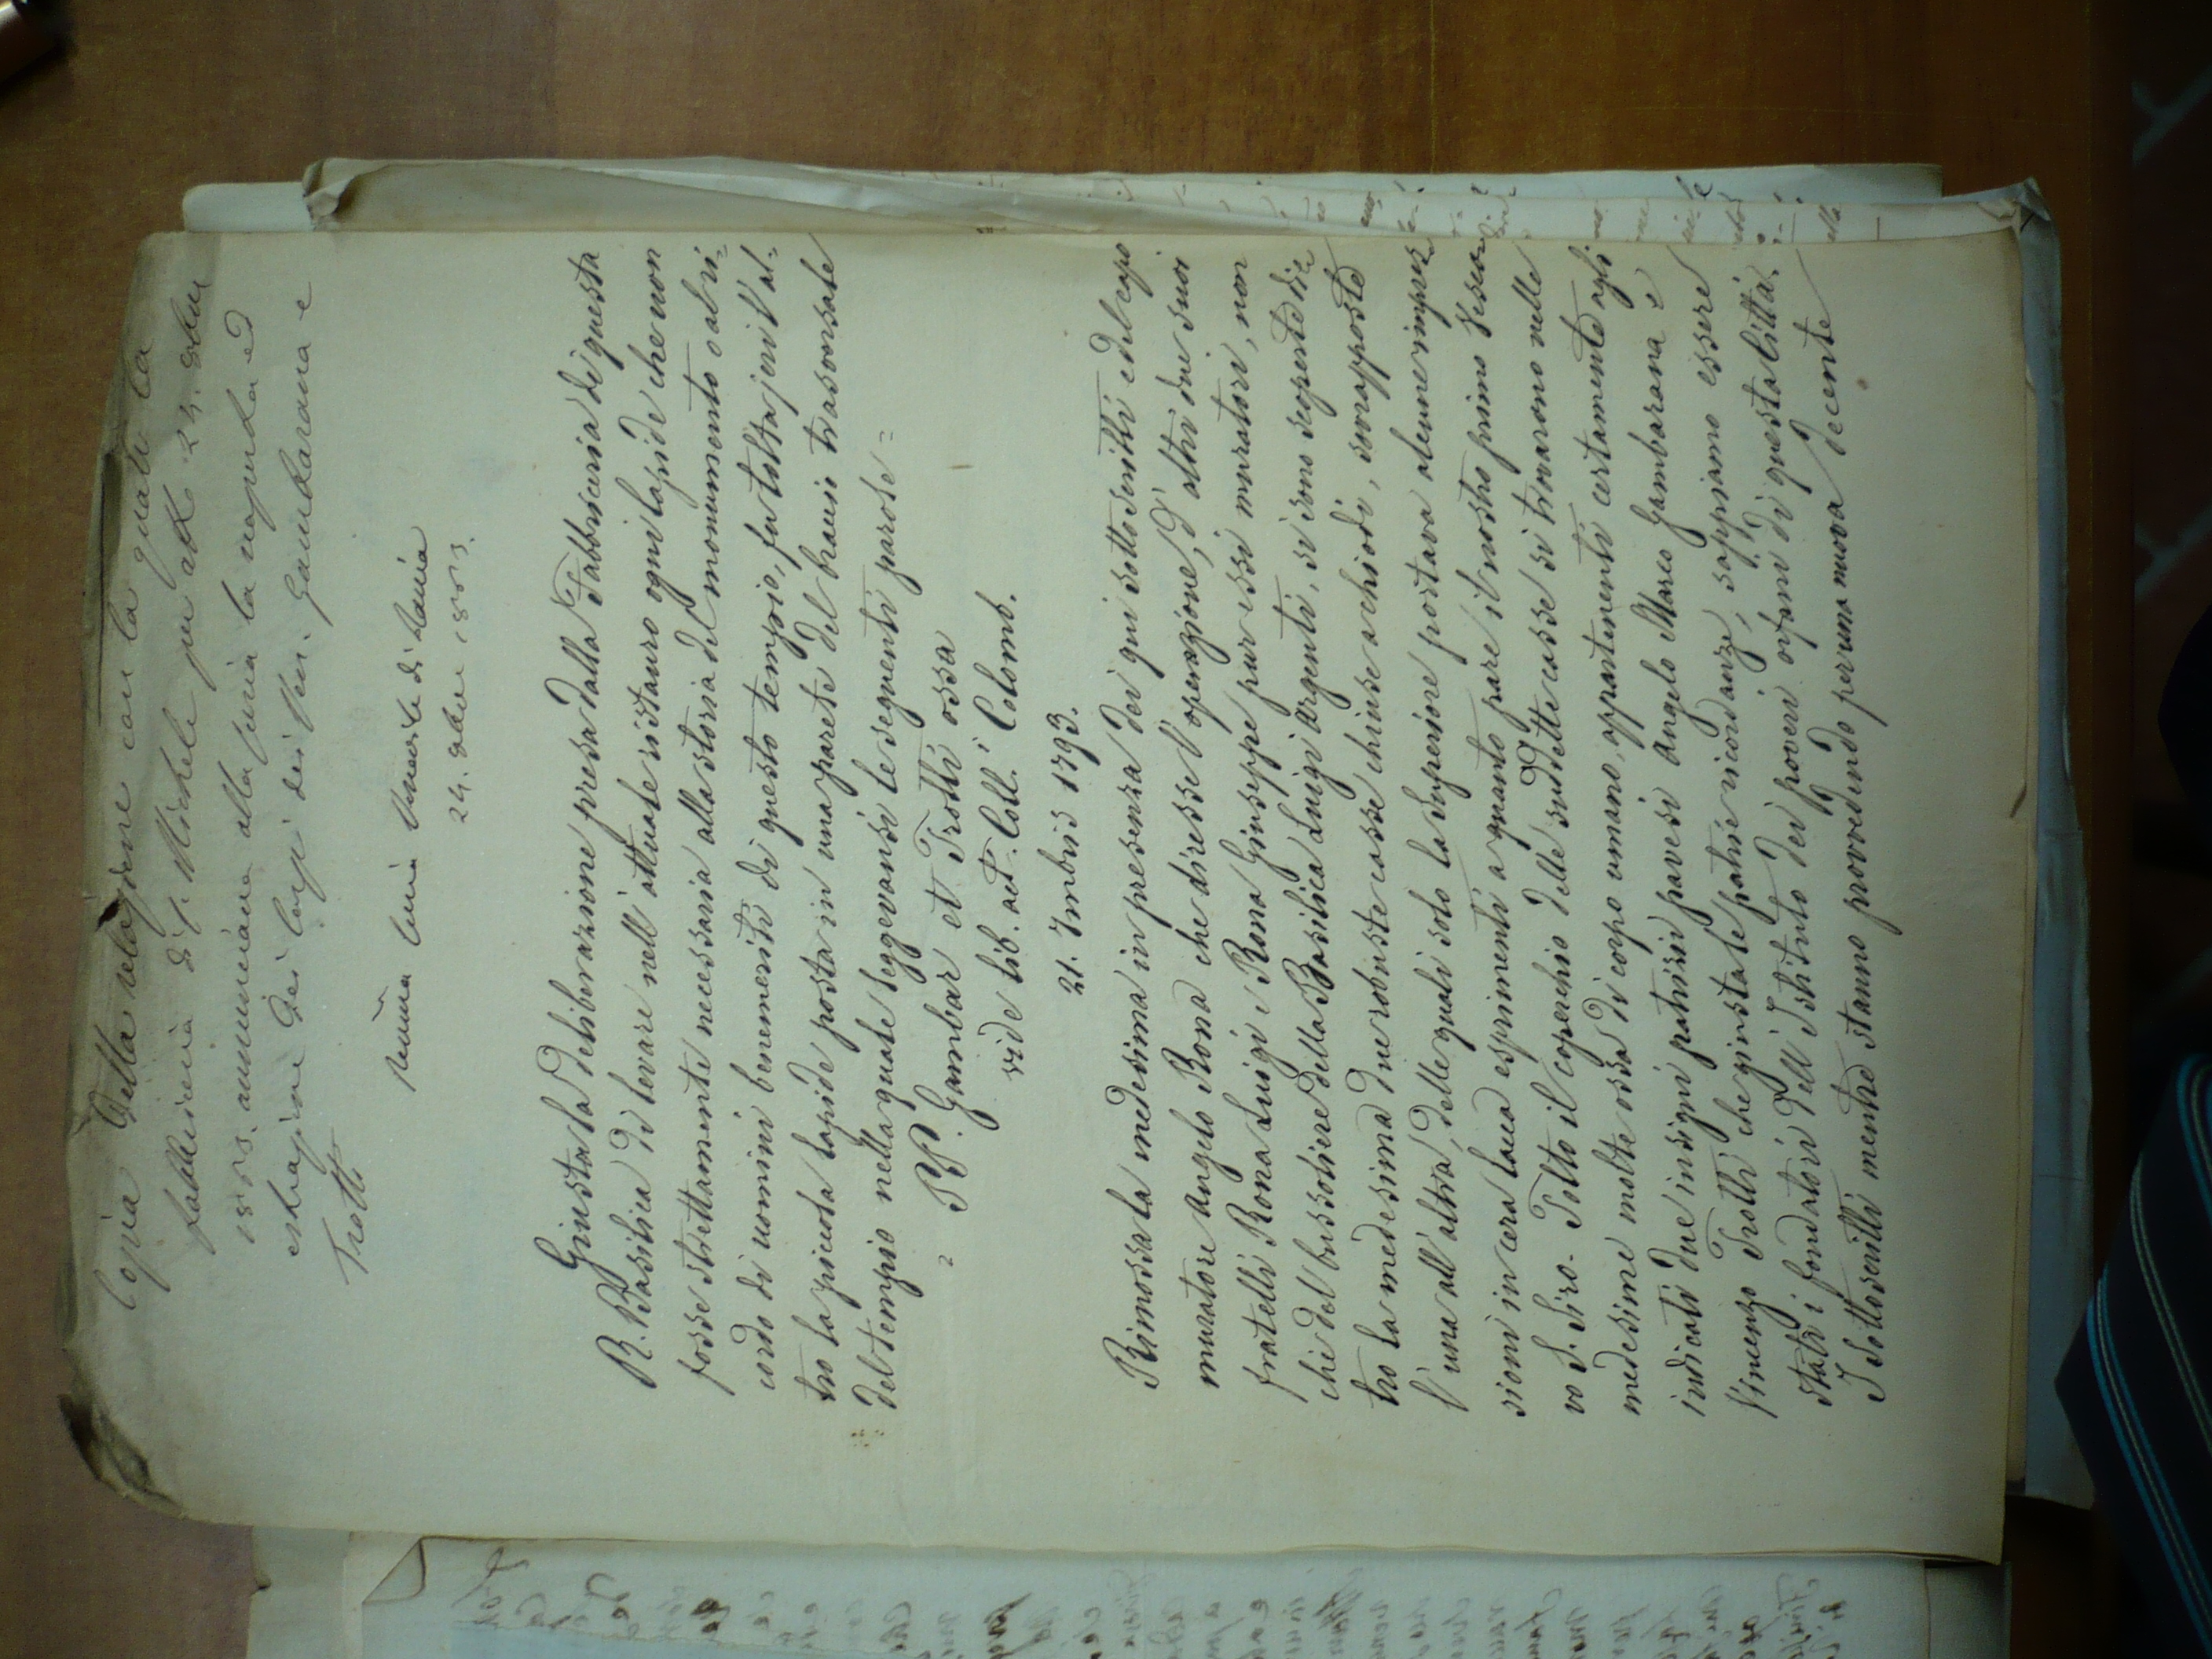 Copia della relazione con la quale la
fabbriceria di S. Michele per atto 24. 8bre
1855. annunciava alla Curia la seguita ed
estrazione dei corpi dei Ven. Gambarana e
Trotti
Curia Vescovile di Pavia
24. 8bre 1855.
Giusta la deliberazione presa dalla Fabbriceria di questa
R. Basilica di levare nell'attuale ristauro ogni lapide che non
fosse strettamente necessaria alla storia del monumento o al ri=
cordo di uomini benemeriti di questo tempio, fu tolta jeri l'al=
tro la piccola lapide posta in una parete del braccio trasversale
del tempio nella quale leggevansi le seguenti parole =
= PP. Gambar et Trotti ossa
vide lib. act. Coll.i Colomb.
21. 7mbris 1793.
Rimossa la medesima in presenza dei qui sottoscritti e del capo
muratore Angelo Bona che diresse l'operazione, d'altri due suoi
fratelli Bona Luigi e Bona Giuseppe pur essi muratori, non
che del bussoliere della Basilica Luigi Argenti, si sono scoperte die
tro la medesima due robuste casse chiuse a chiodi, sovrapposte
l'una all'altra, delle quali solo la superiore portava alcune impres
sioni in cera lacca esprimenti a quanto pare il nostro primo Vesco
vo S. Siro. Tolto il coperchio delle suddette casse si trovarono nelle
medesime molte ossa di corpo umano, appartenenti certamente agli
indicati due insigni patrizii pavesi Angelo Marco Gambarana e
Vincenzo Trotti che giusta le patrie ricordanze, sappiamo essere
stati i fondatori dell'Istituto dei poveri orfani di questa Città.
I Sottoscritti mentre stanno provvedendo per una nuova decente